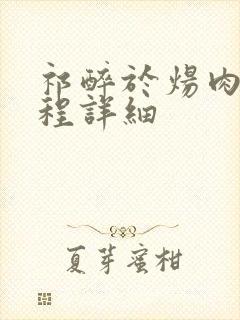 祁醉於煬肉
程詳細
夏芽蜜柑